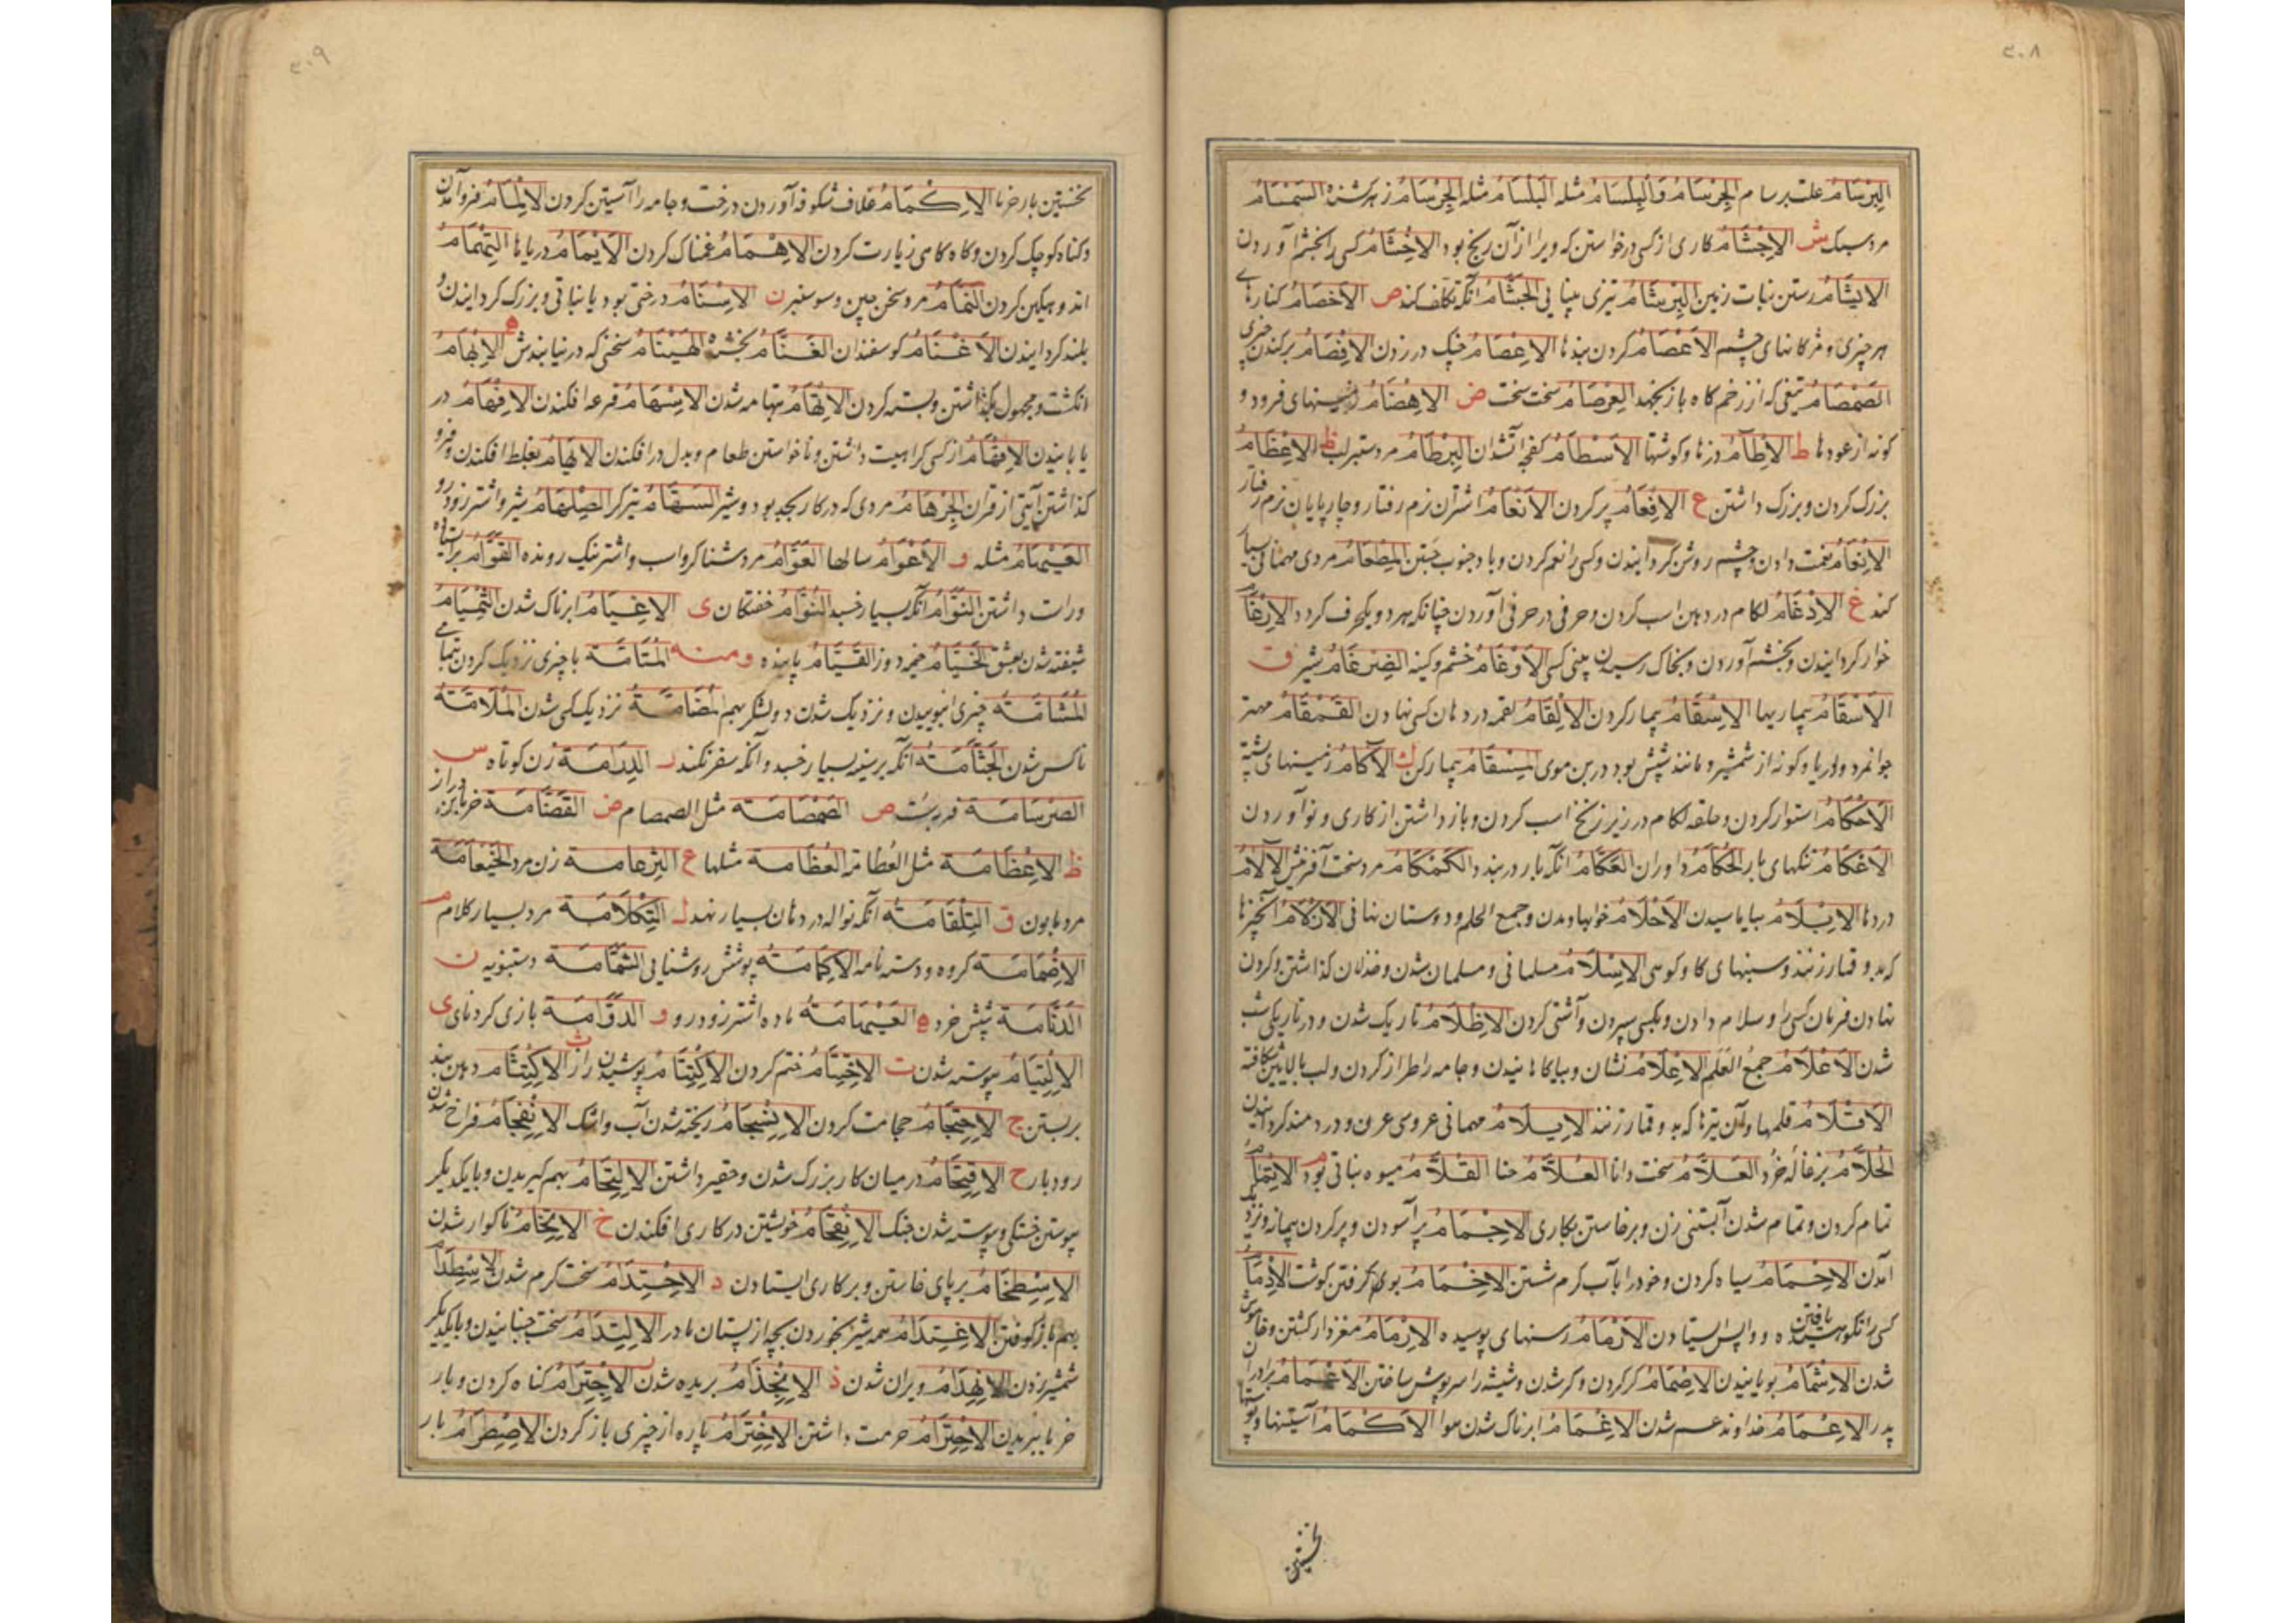 ۲۰۸
البِرْسَامُ علت برسام الجِرْسَامُ وَالبِلْسَامُ مثله البَلْسَامُ مثله الجِرْسَامُ زهر كشنده السَّمْسَامُ
مرد سبك ش الاِجْشَامُ كارى از كسى درخواستن كه ويرا از آن رنج بود الاِحْشَامُ كسى را بخشم آوردن
الاِيشَامُ رستن نبات زمين البِرْشَامُ تيزى بينايى الجَشَّامُ آنكه تكلف كند ص الاَخْصَامُ كنارهاى
هر چيزى و مژكانهاى چشم الاَعْصَامُ كردن بندها الاِعْصَامُ چنك در زدن الاِفْصَامُ بر كندن چيزى
الصَّمْصَامُ تيغى كه از زخم كاه باز نجهد العِرْصَامُ سخت سخت ض الاَهْضَامُ زمينهاى فرود و
كونه از عودها ط الاٰطَامُ دزها و كوشتها الاِسْطَامُ كفچه آتشدان البِرْطَامُ مرد ستبر لب ظ الاِعْظَامُ
بزرك كردن و بزرك داشتن ع الاِفْعَامُ پر كردن الاَنْعَامُ اشتران نرم رفتار و چارپايان نرم رفتار
الاِنْعَامُ نعمت دادن و چشم روشن كردانيدن و كسى را نعم كردن و باد جنوب جستن المِطْعَامُ مردى مهمانى بسيار
كند غ الاِدْغَامُ لكام در دهن اسب كردن و حرفى در حرفى آوردن چنانكه هر دو يكحرف كردد الاِرْغَامُ
خوار كردانيدن و بخشم آوردن و بخاك رسيدن بينى كسى الاَوْغَامُ خشم و كينه الضِّرْغَامُ شير ق
الاَسْقَامُ بيماريها الاِسْقَامُ بيمار كردن الاِلْقَامُ لقمه در دهان كسى نهادن القَمْقَامُ مهتر
جوانمرد و دريا و كونه از شمشير و مانند شپش بود در بن موى المِسْقَامُ بيمار كن ك الاٰكَامُ زمينهاى پشته
الاِحْكَامُ استوار كردن و حلقه لكام در زير زنخ اسب كردن و باز داشتن از كارى و نو آوردن
الاَعْكَامُ تنكهاى بار الحُكَّامُ داوران العَكَّامُ آنكه بار در بندد الكَمْكَامُ مرد سخت آفرينش الاٰلَامُ
دردها الاِبْلَامُ بياماسيدن الاَحْلَامُ خوابها ديدن و جمع الحلم و دوستان نهانى الاَزْلَامُ آنچيزها
كه بدو قمار زنند و سينهاى كاو كوهى الاِسْلَامُ مسلمانى و مسلمان شدن و خذلان كذاشتن و كردن
نهادن فرمان كسى را و سلام دادن و بكسى سپردن و آشتى كردن الاِظْلَامُ تاريك شدن و در تاريكى شب
شدن الاَعْلَامُ جمعُ العَلَم الاِعْلَامُ نشان و بياكاهانيدن و جامه را طراز كردن و لب بالايين شكافته
الاَقْلَامُ قلمها و آن تيرها كه بدو قمار زنند الاِيلَامُ مهمانى عروسى عرف و دردمند كردانيدن
الحُلَّامُ بزغاله خُرد العَلَّامُ سخت دانا العُلَّامُ حنا القُلَّامُ ميوه نباتى بود م الاِتْمَامُ
تمام كردن و تمام شدن آبستنى زن و برخاستن بكارى الاِجْمَامُ بر آسودن و پر كردن پيمانه و نزديك
آمدن الاِحْمَامُ سياه كردن و خود را بآب كرم شستن الاِخْمَامُ بوى كرفتن كوشت الاِذْمَامُ
كسى را نكوهيده يافتن و واپس ايستادن الاَرْمَامُ رسنهاى پوسيده الاِرْمَامُ مغزدار كشتن و خاموش
شدن الاِشْمَامُ بويانيدن الاِصْمَامُ كر كردن و كر شدن و شيشه را سرپوش ساختن الاَعْمَامُ برادران
پدر الاِعْمَامُ خداوند عم شدن الاِغْمَامُ ابرناك شدن هوا الاَكْمَامُ آستينها و پوستها
نخستين
۲۰۹
نخستين بار خرما الاِكْمَامُ غلاف شكوفه آوردن درخت و جامه را آستين كردن الاِلْمَامُ فرو آمدن
و كناه كوچك كردن و كاه كاهى زيارت كردن الاِهْمَامُ غمناك كردن الاَيْمَامُ درياها التِّهْمَامُ
اندوهكين كردن النَّمَّامُ مرد سخن چين و سوسنبر ن الاِسْنَامُ درختى بود يا نباتى و بزرك كردانيدن و
بلند كردانيدن الاَغْنَامُ كوسفندان الغَنَّامُ بخشنده الهَيْنَامُ سخنى كه در نيابندش ه الاِبْهَامُ
انكشت و مجهول بكذاشتن و بسته كردن الاِتْهَامُ بتهامه شدن الاِسْهَامُ قرعه افكندن الاِفْهَامُ در
يابانيدن الاِقْهَامُ از كسى كراهيت داشتن و ناخواستن طعام و بدل در افكندن الاِيهَامُ بغلط افكندن و فرو
كذاشتن آيتى از قران الجِرْهَامُ مردى كه در كار بجد بود و شير السَّهَّامُ تيركر الصِّلْهَامُ شير و اشتر زود رو
العَيْهَامُ مثله و الاَعْوَامُ سالها العَوَّامُ مرد شناكر و اسب و اشتر نيك رونده القَوَّامُ براستاه
و راست داشتن النَّوَّامُ آنكه بسيار خسبد النُّوَّامُ خفتكان ى الاِغْيَامُ ابرناك شدن التِّهْيَامُ
شيفته شدن بعشق الخَيَّامُ خيمه دوز القَيَّامُ پاينده ومنه المُتَامَّة با چيزى نزديك كردن بتمامى
المُشَامَّة چيزى انبوييدن و نزديك شدن دو لشكر بهم المُضَامَّة نزديك كسى شدن المُلَامَّة
ناكس شدن الجَثَّامَةُ آنكه بر سينه بسيار خسبد و آنكه سفر نكند د الدِّدَامَة زن كوتاه س
الصِّرْسَامَة ص الصَّمْصَامَة مثل الصمصام ض القَضَّامَة خرمابن دراز
ظ الاِعْظَامَة مثل العُظَّامَة العُظَامَة مثلها ع البِرْعَامَة زن مرد الخَيْعَامَة
مرد مابون ق التِّلْقَامَةُ آنكه نواله در دهان بسيار نهد ل التِّكْلَامَة مرد بسيار كلام م
الاِضْمَامَة كروه و دسته نامه الاِكْمَامَةُ پوشش روشنايى الشَّمَّامَة دستنبويه ن
الدِّنَّامَة شپش خرد ه العَيْهَامَةُ ماده اشتر زودرو و الدَّوَّامَة بازى كردناى ى
الاِلْتِيَامُ پيوسته شدن ت الاِخْتِتَامُ ختم كردن الاِكْتِتَامُ پوشيدن راز ث الاِكْتِثَامُ دهن بند
بر بستن ج الاِحْتِجَامُ حجامت كردن الاِنْسِجَامُ ريخته شدن آب و اشك الاِنْفِجَامُ فراخ شدن
رودبار ح الاِقْتِحَامُ در ميان كار بزرك شدن و حقير داشتن الاِلْتِحَامُ بهم كيريدن و با يكديكر
پيوستن خستكى و پيوسته شدن جنك الاِنْقِحَامُ خويشتن در كارى افكندن خ الاِتِّخَامُ ناكوار شدن
الاِسْطِخَامُ بر پاى خاستن و بر كارى ايستادن د الاِحْتِدَامُ سخت كرم شدن الاِسْطِدَامُ
بهم باز كوفتن الاِغْتِدَامُ همه شير بخوردن بچه از پستان مادر الاِلْتِدَامُ سخت جنبانيدن و با يكديكر
شمشير زدن الاِنْهِدَامُ ويران شدن ذ الاِنْجِذَامُ بريده شدن ر الاِجْتِرَامُ كناه كردن و بار
خرما ببريدن الاِحْتِرَامُ حرمت داشتن الاِخْتِرَامُ پاره از چيزى باز كردن الاِصْطِرَامُ بار